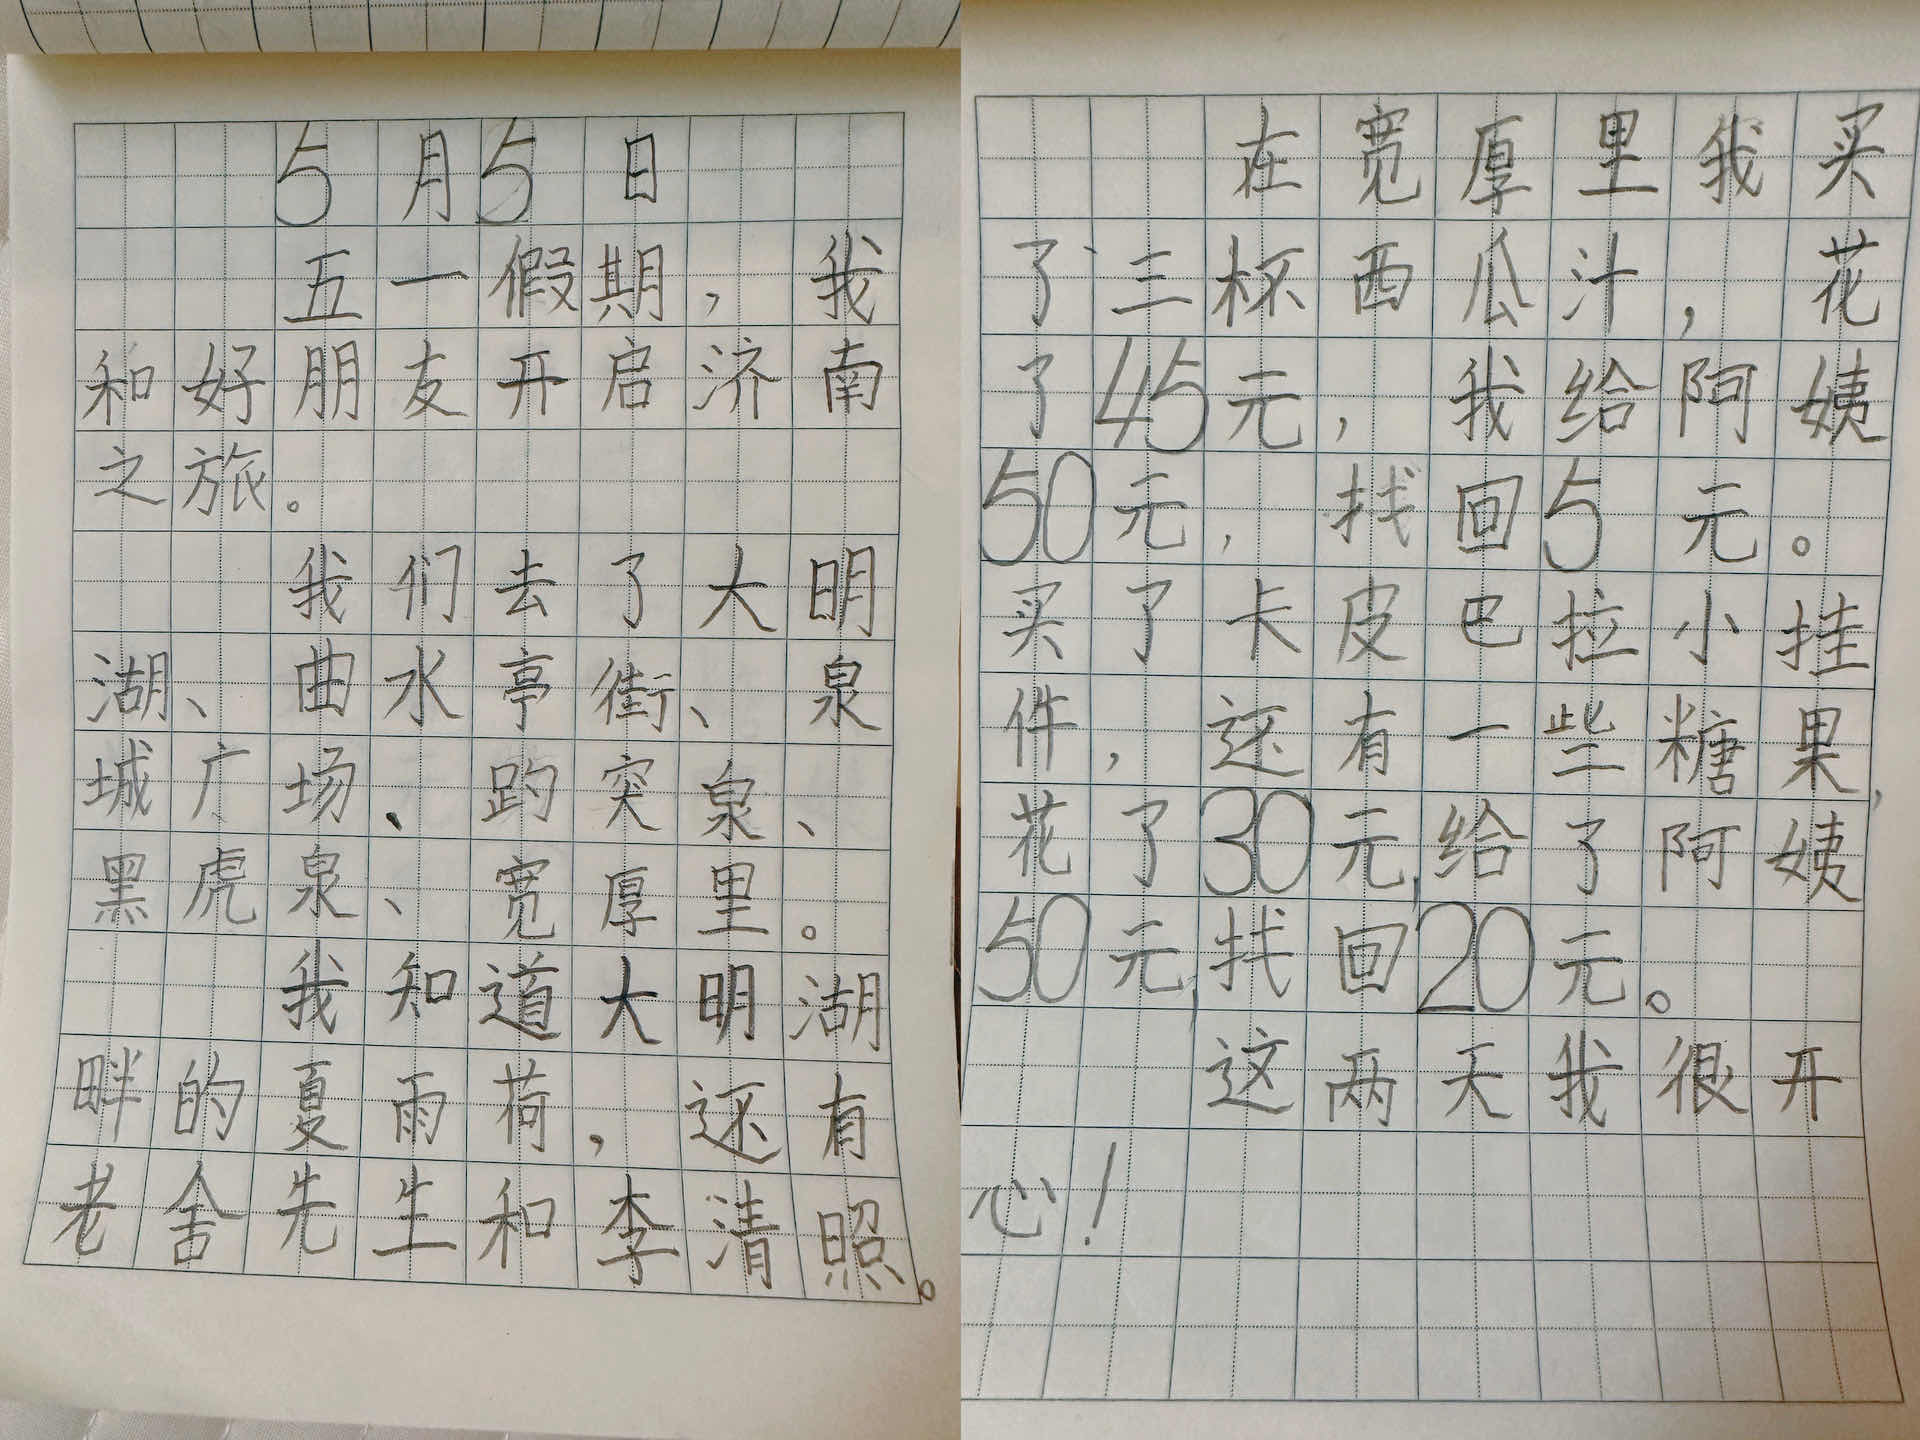 5月5日
五一假期，我
和好朋友开启济南
之旅。
我们去了大明
湖、曲水亭街、泉
城广场、趵突泉、
黑虎泉、宽厚里。
我知道大明湖
畔的夏雨荷，还有
老舍先生和李清照。
在宽厚里我买
了三杯西瓜汁，花
了45元，我给阿姨
50元，找回5元。
买了卡皮巴拉小挂
件，还有一些糖果，
花了30元，给了阿姨
50元，找回20元。
这两天我很开
心！